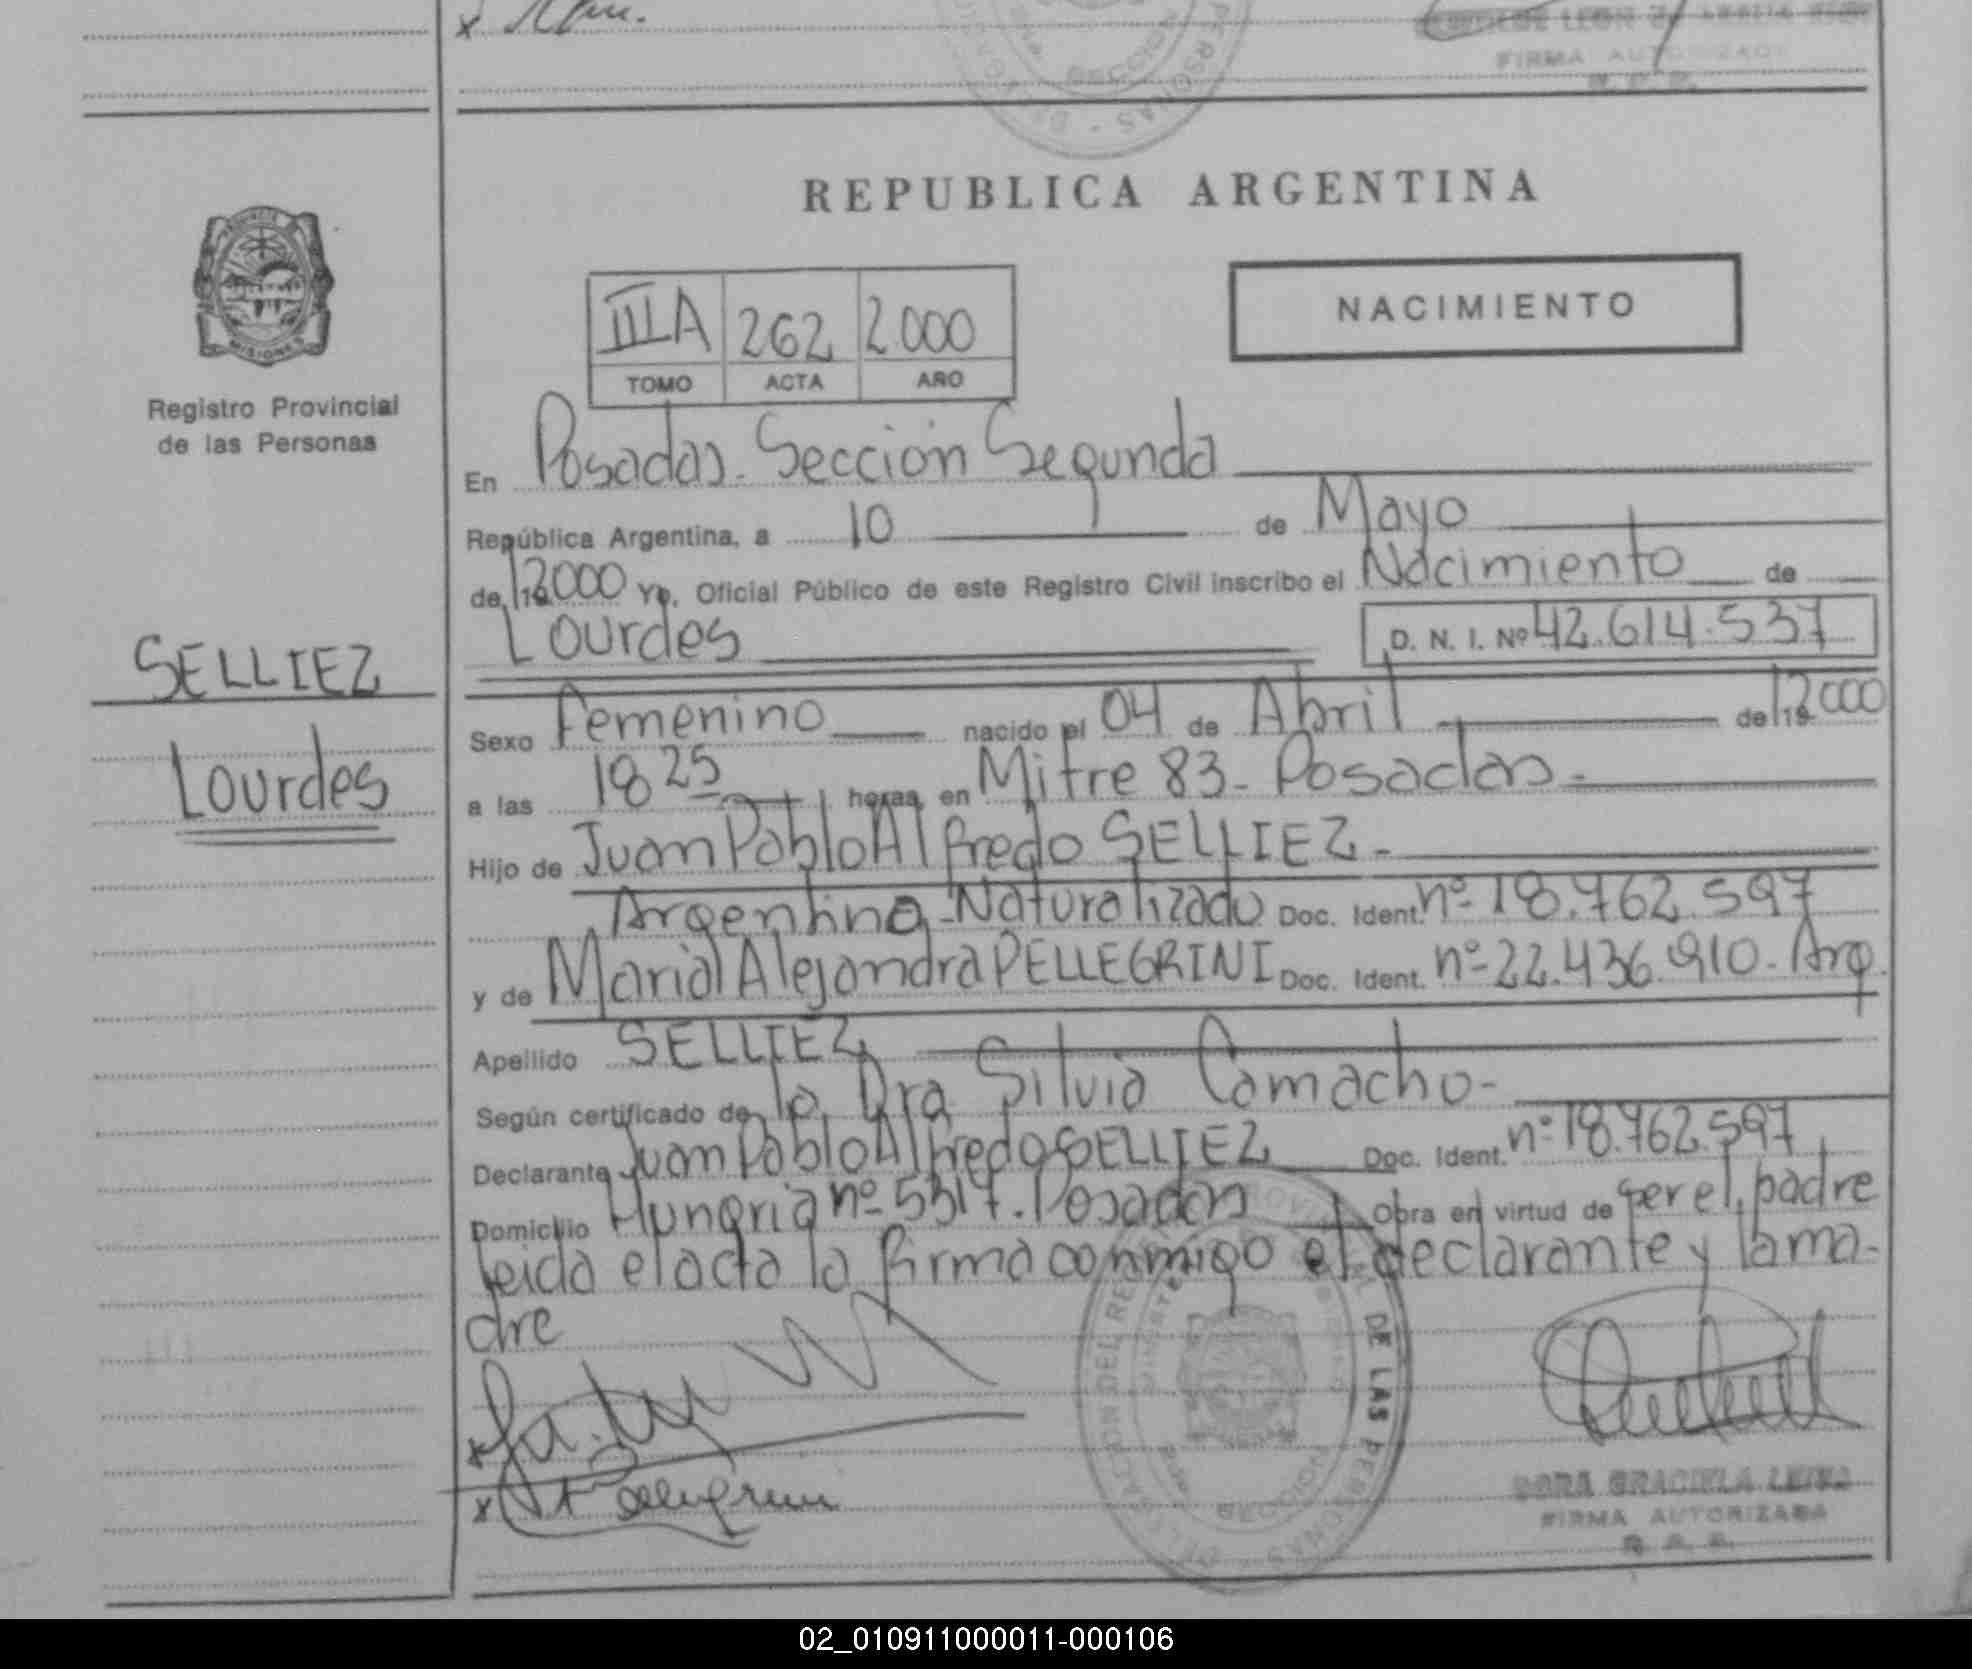 FIRMA AUTORIZADA
REPUBLICA ARGENTINA
MISIONES
Registro Provincial
de las Personas
IIIA 262 2.000
TOMO ACTA AÑO
NACIMIENTO
En Posadas. Sección Segunda
República Argentina, a 10 de Mayo
de 2000 Yo, Oficial Público de este Registro Civil inscribo el Nacimiento de
Lourdes D. N. I. Nº 42.614.537
SELLIEZ
Lourdes
Sexo Femenino nacido el 04 de Abril de 2000
a las 18 25 horas, en Mitre 83 - Posadas -
Hijo de Juan Pablo Alfredo SELLIEZ -
Argentino - Naturalizado Doc. Ident. nº 18.762.597
y de María Alejandra PELLEGRINI Doc. Ident. nº 22.436.910 - Arg.
Apellido SELLIEZ
Según certificado de la Dra Silvia Camacho -
Declarante Juan Pablo Alfredo SELLIEZ Doc. Ident. nº 18.762.597
Domicilio Hungria nº 5317. Posadas Obra en virtud de ser el padre
leida el acta la firma conmigo el declarante y la ma-
dre
DORA GRACIELA LEIVA
FIRMA AUTORIZADA
R. P. P.
02_010911000011-000106